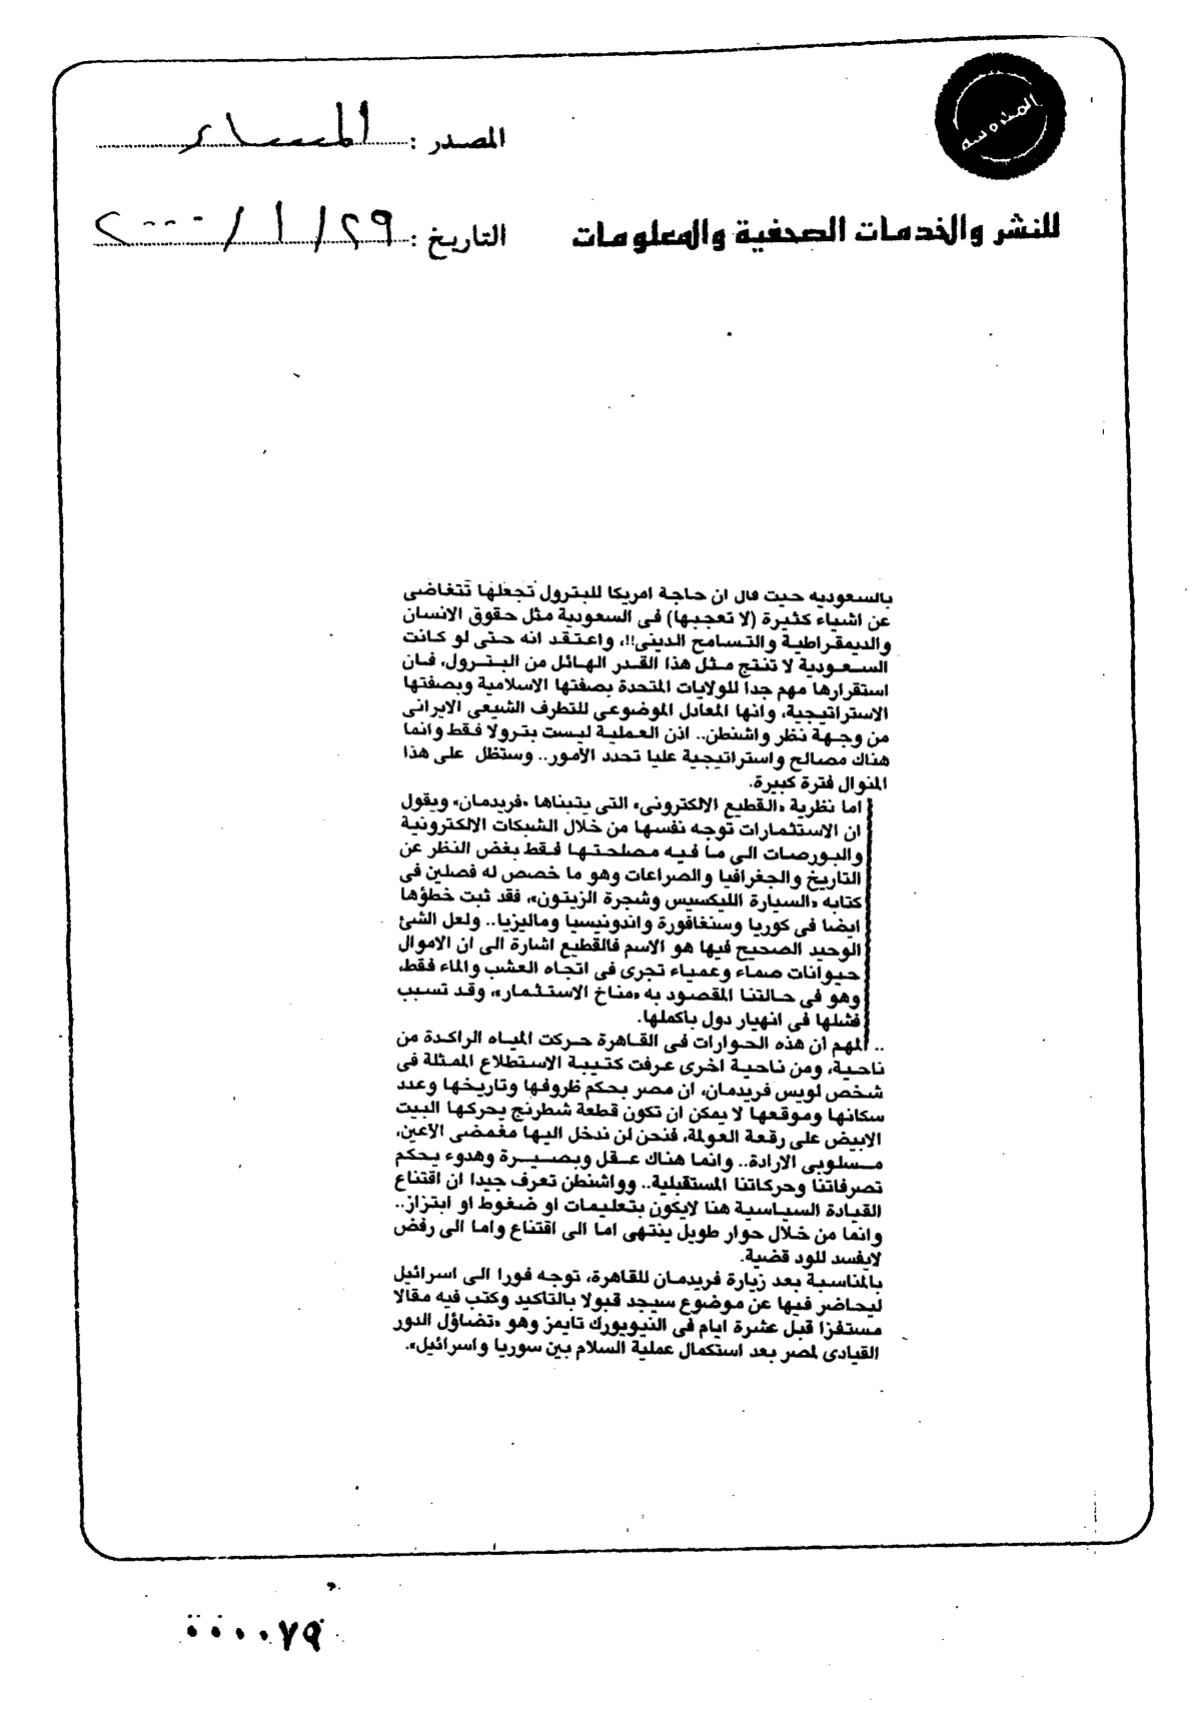 المصدر : المساء
للنشر والخدمات الصحفية والمعلومات
التاريخ : ٢٩ / ١ / ٢٠٠٠
بالسعوديه حيث قال ان حاجة امريكا للبترول تجعلها تتغاضى
عن اشياء كثيرة (لا تعجبها) فى السعودية مثل حقوق الانسان
والديمقراطية والتسامح الدينى!!، واعتقد انه حتى لو كانت
السعودية لا تنتج مثل هذا القدر الهائل من البترول، فان
استقرارها مهم جدا للولايات المتحدة بصفتها الاسلامية وبصفتها
الاستراتيجية، وانها المعادل الموضوعى للتطرف الشيعى الايرانى
من وجهة نظر واشنطن.. اذن العملية ليست بترولا فقط وانما
هناك مصالح واستراتيجية عليا تحدد الأمور.. وستظل على هذا
المنوال فترة كبيرة.
اما نظرية «القطيع الالكترونى» التى يتبناها «فريدمان» ويقول
ان الاستثمارات توجه نفسها من خلال الشبكات الالكترونية
والبورصات الى ما فيه مصلحتها فقط بغض النظر عن
التاريخ والجغرافيا والصراعات وهو ما خصص له فصلين فى
كتابه «السيارة الليكسيس وشجرة الزيتون»، فقد ثبت خطؤها
ايضا فى كوريا وسنغافورة واندونيسيا وماليزيا.. ولعل الشئ
الوحيد الصحيح فيها هو الاسم فالقطيع اشارة الى ان الاموال
حيوانات صماء وعمياء تجرى فى اتجاه العشب والماء فقط،
وهو فى حالتنا المقصود به «مناخ الاستثمار»، وقد تسبب
فشلها فى انهيار دول باكملها.
.. المهم أن هذه الحوارات فى القاهرة حركت المياه الراكدة من
ناحية، ومن ناحية اخرى عرفت كتيبة الاستطلاع الممثلة فى
شخص لويس فريدمان، ان مصر بحكم ظروفها وتاريخها وعدد
سكانها وموقعها لا يمكن ان تكون قطعة شطرنج يحركها البيت
الابيض على رقعة العولمة، فنحن لن ندخل اليها مغمضى الأعين،
مسلوبى الارادة.. وانما هناك عقل وبصيرة وهدوء يحكم
تصرفاتنا وحركاتنا المستقبلية.. وواشنطن تعرف جيدا ان اقتناع
القيادة السياسية هنا لايكون بتعليمات او ضغوط او ابتزاز..
وانما من خلال حوار طويل ينتهى اما الى اقتناع واما الى رفض
لايفسد للود قضية.
بالمناسبة بعد زيارة فريدمان للقاهرة، توجه فورا الى اسرائيل
ليحاضر فيها عن موضوع سيجد قبولا بالتاكيد وكتب فيه مقالا
مستفزا قبل عشرة ايام فى النيويورك تايمز وهو «تضاؤل الدور
القيادى لمصر بعد استكمال عملية السلام بين سوريا واسرائيل».